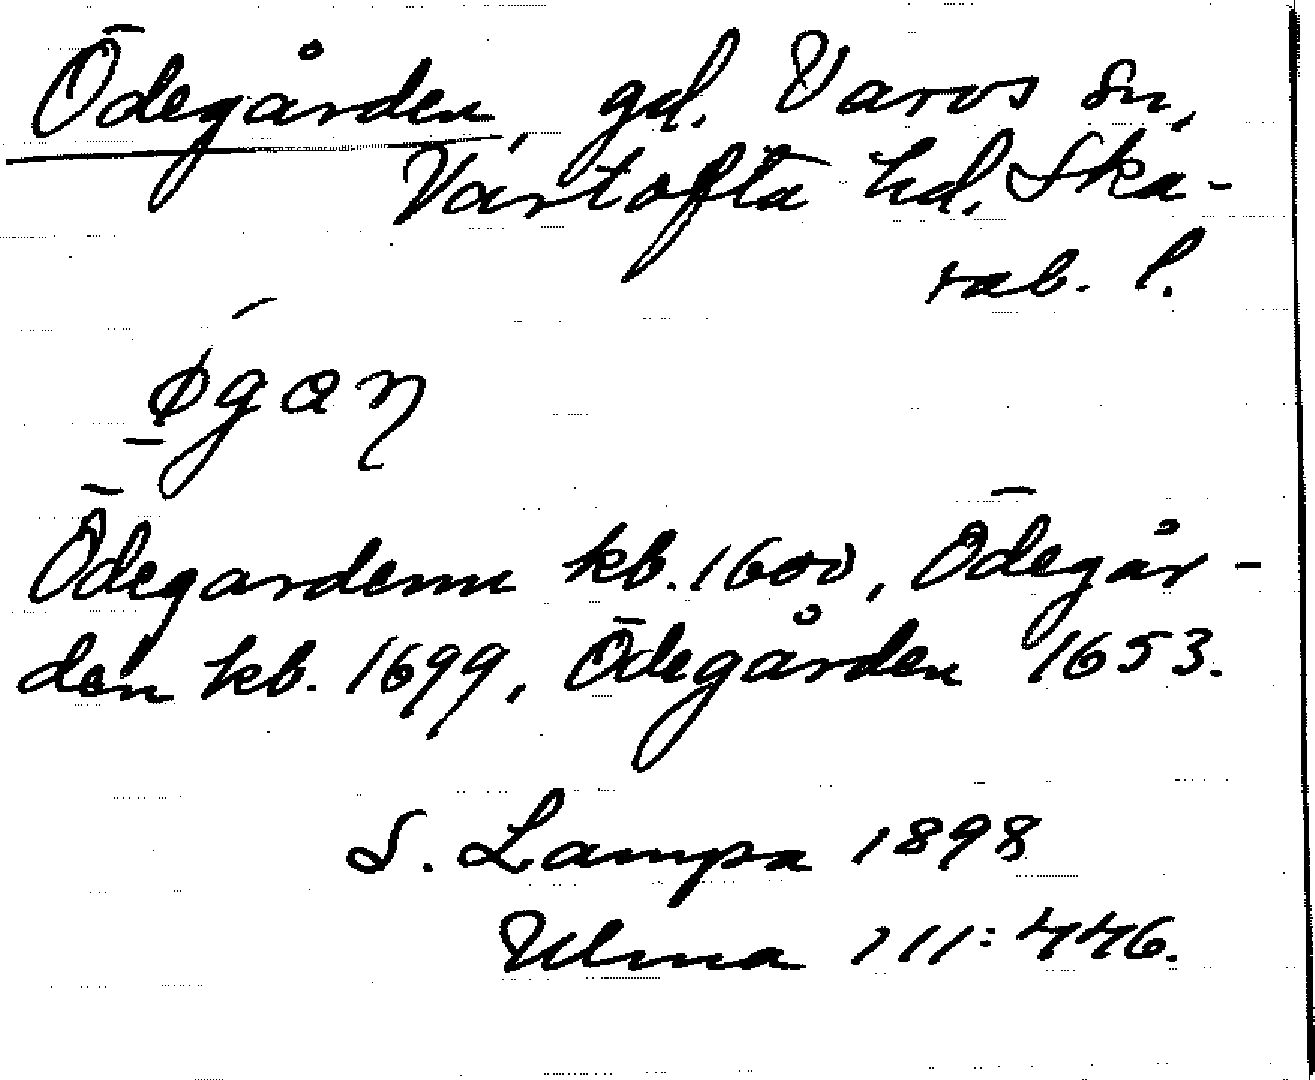 Ödegården, gd. Varvs sn,
Vartofta hd. Ska-
rab. l.
ǿ̱gaη
Ödegardenn kb. 1600, Ödegår-
den kb. 1699, Ödegården 1653.
S. Lampa 1898
Ulma 111:446.